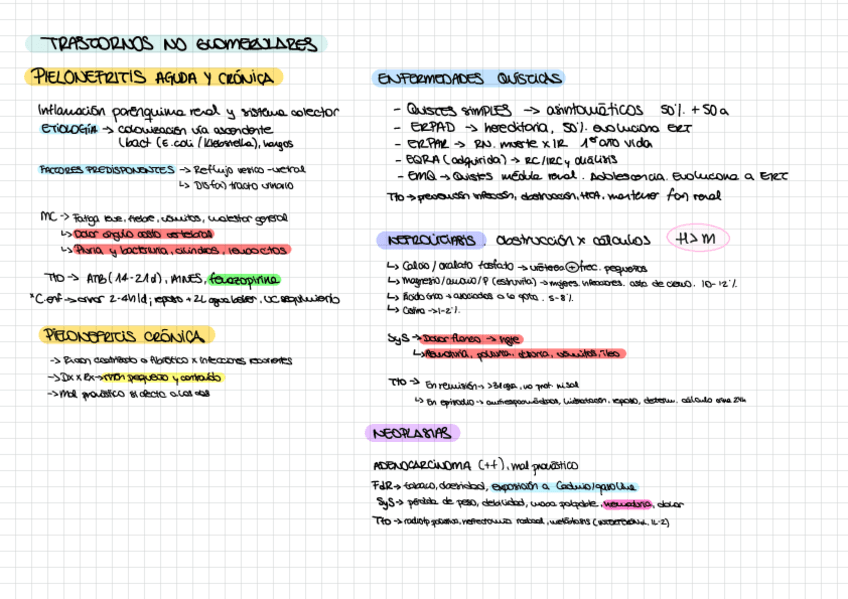 TRASTORNOS NO GLOMERULARES
PIELONEFRITIS AGUDA Y CRÓNICA
Inflamación parénquima renal y sistema colector
ETIOLOGÍA → colonización vía ascendente
(bact (E. coli / Klebsiella), hongos
FACTORES PREDISPONENTES → Reflujo vesico-uretral
↳ Disf(x) tracto urinario
MC → Fatiga leve, fiebre, vómitos, malestar general
↳ Dolor ángulo costo vertebral
↳ Piuria y bacteriuria, cilindros, leucocitos
Tto → ATB (14-21d), AINES, fenazopirina
*C. enf → orinar 2-4h/d; reposo + 2L agua beber, UC seguimiento
PIELONEFRITIS CRÓNICA
→ Riñón cicatrizado o fibrótico x infecciones recurrentes
→ Dx x Rx → riñón pequeño y contraído
→ Mal pronóstico si afecta a los dos
ENFERMEDADES QUÍSTICAS
- QUISTES SIMPLES → asintomáticos 50% + 50a
- ERPAD → hereditaria, 50% evoluciona ERT
- ERPAR → RN. muerte x IR 1er año vida
- EQRA (adquirida) → RC/IRC y diálisis
- EMQ → Quistes médula renal. Adolescencia. Evoluciona a ERT
Tto → prevención infección, obstrucción, HTA, mantener fon renal
NEFROLITIASIS. obstrucción x cálculos H>M
↳ Calcio / oxalato fosfato → uréteres ⊕ frec. pequeños
↳ Magnesio/amonio/P (estruvita) → mujeres. infecciones. asta de ciervo. 10-12%
↳ Ácido úrico + asociados a la gota. 5-8%
↳ Cistina → 1-2%
SyS → Dolor flanco → ingle
↳ Hematuria, poliuria, disuria, vómitos, íleo
Tto → En remisión → >3L agua, no prot. ni sal
↳ En episodio → antiespasmódicos, hidratación, reposo, determ. cálculo orina 24h
NEOPLASIAS
ADENOCARCINOMA (++), mal pronóstico
FdR → tabaco, obesidad, exposición a Cadmio/gasolina
SyS → pérdida de peso, debilidad, masa palpable, hematuria, dolor
Tto → radiotp paliativa, nefrectomía radical, metástasis (INTERFERON, IL-2)